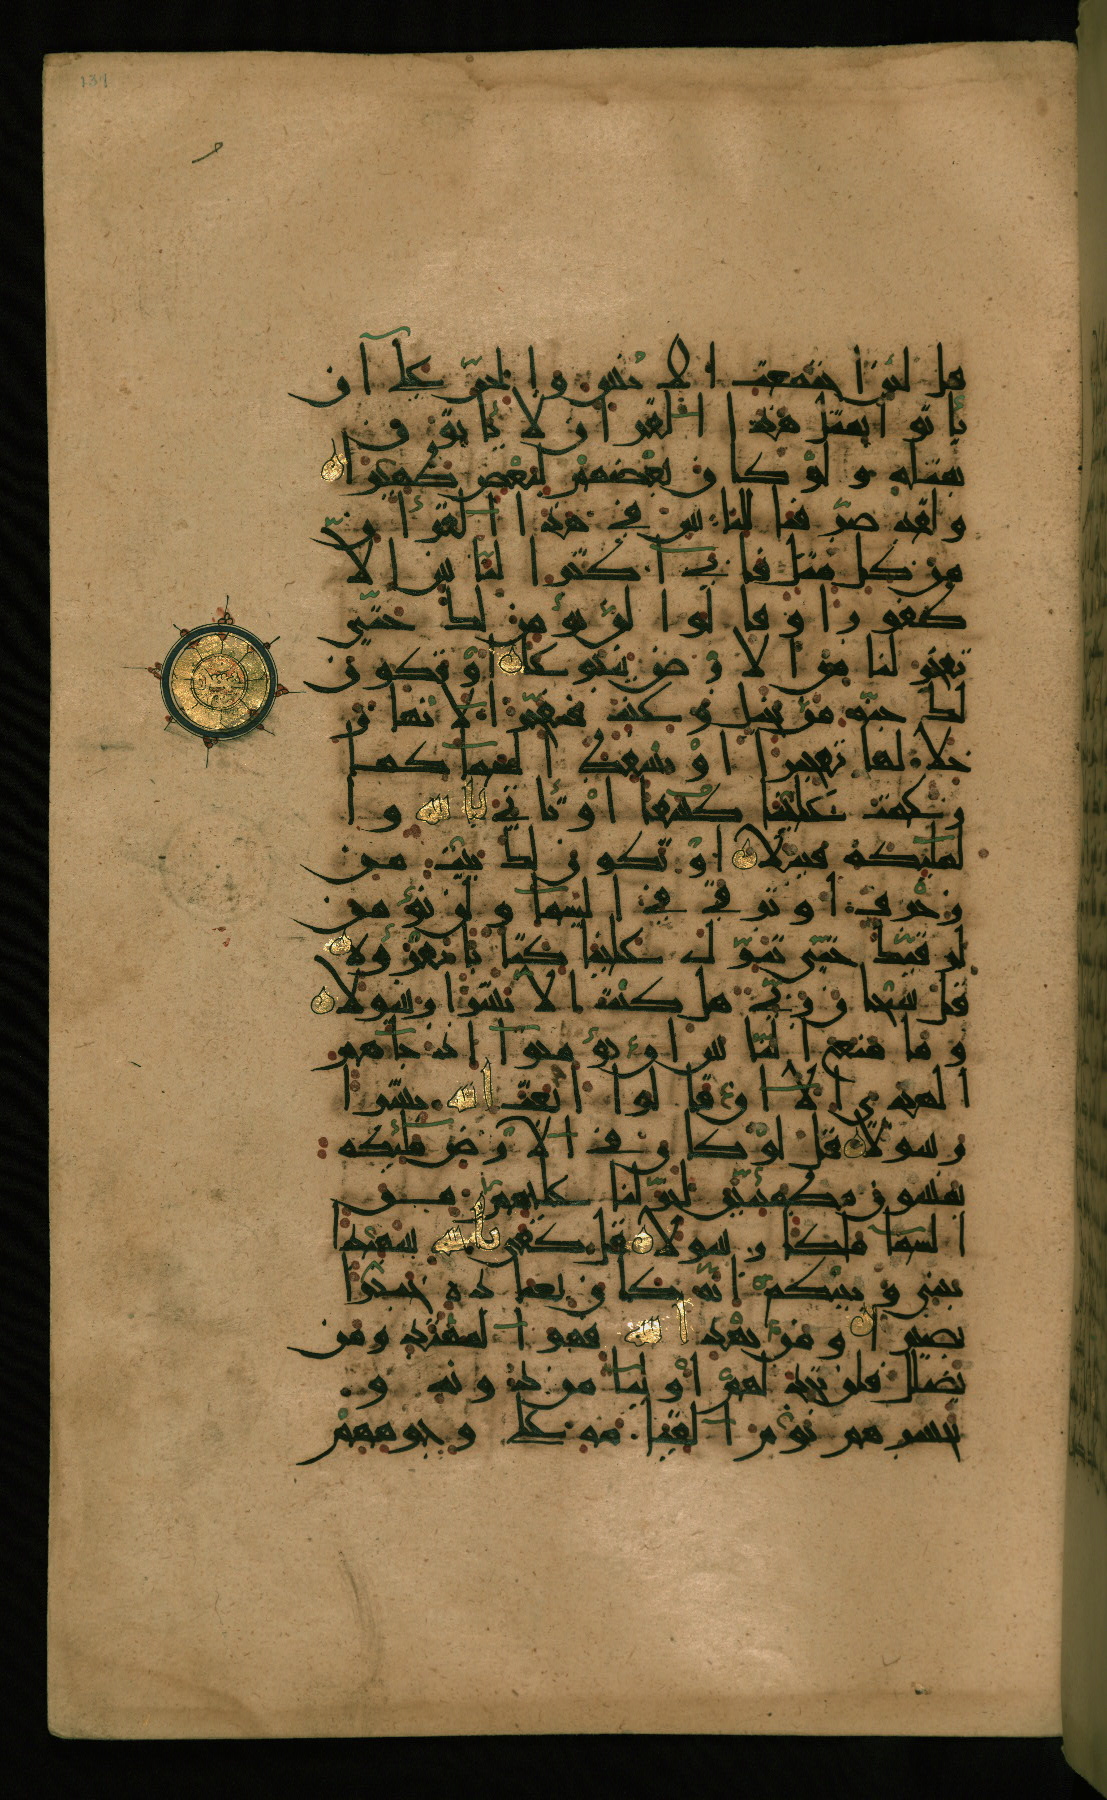 131
قل لئن اجتمعت الانس والجن على ان
ياتوا بمثل هذا القران لا ياتون
بمثله ولو كان بعضهم لبعض ظهيرا
ولقد صرفنا للناس في هذا القران
من كل مثل فابى اكثر الناس الا
كفورا وقالوا لن نؤمن لك حتى
تفجر لنا من الارض ينبوعا او تكون
لك جنه من نخيل وعنب فتفجر الانهار
خلالها تفجيرا او تسقط السما كما
زعمت علينا كسفا او تاتي بالله وا
لملئكه قبيلا او يكون لك بيت من
زخرف او ترقى في السما ولن نؤمن
لرقيك حتى تنزل علينا كتبا نقرؤه
قل سبحان ربي هل كنت الا بشرا رسولا
وما منع الناس ان يؤمنوا اذ جاهم
الهدى الا ان قالوا ابعث الله بشرا
رسولا قل لو كان في الارض ملئكه
يمشون مطمئنين لنزلنا عليهم من
السما ملكا رسولا قل كفى بالله شهيدا
بيني وبينكم انه كان بعباده خبيرا
بصيرا ومن يهد الله فهو المهتد ومن
يضلل فلن تجد لهم اوليا من دونه و
نحشرهم يوم القيمه على وجوههم